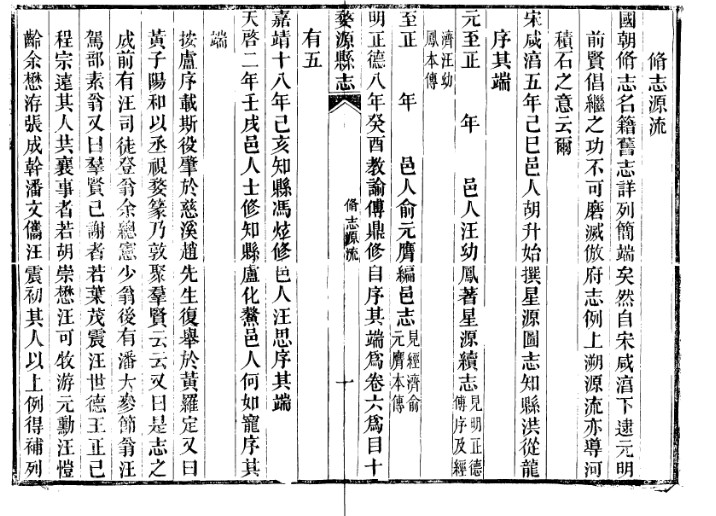 脩志源流
國朝脩志名籍舊志詳列簡端矣然自宋咸淳下逮元明
前賢倡繼之功不可磨滅倣府志例上溯源流亦導河
積石之意云爾
宋咸淳五年己巳邑人胡升始撰星源圖志知縣洪從龍
序其端
元至正　年　邑人汪幼鳳著星源續志見明正德傳序及經
濟汪幼鳳本傳
至正　年　邑人俞元膺編邑志見經濟俞元膺本傳
明正德八年癸酉教諭傅鼎修自序其端爲卷六爲目十
婺源縣志
脩志源流
一
有五
嘉靖十八年己亥知縣馮炫修邑人汪思序其端
天啓二年壬戌邑人士修知縣盧化鰲邑人何如寵序其
端
按盧序載斯役肇於慈溪趙先生復舉於黃羅定又曰
黃子陽和以丞視婺篆乃敦聚羣賢云云又曰是志之
成前有汪司徒登翁余總憲少翁後有潘大參節翁汪
駕部素翁又曰羣賢己謝者若葉茂震汪世德王正己
程宗遠其人共襄事者若胡崇懋汪可牧游元勳汪愷
齡余懋洊張成幹潘文儁汪震初其人以上例得補列